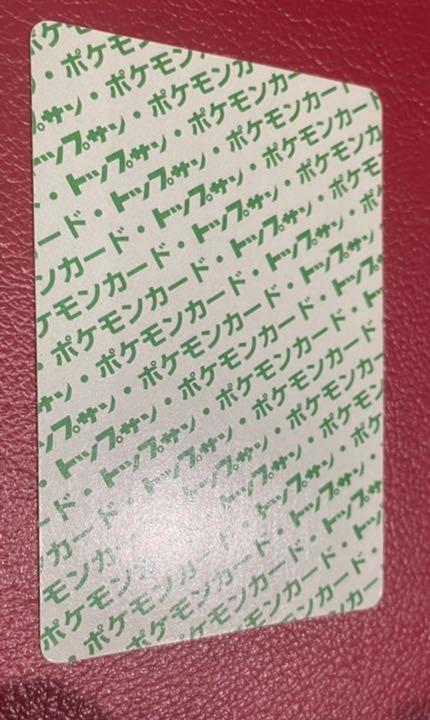 ・ポケモン
プサン・ポケモンカ
トップサン・ポケモンカー
・トップサン・ポケモンカード
ード・トップサン・ポケモンカ
ンカード・トップサン・ポケモ
ケモンカード・トップサン・ポ
・ポケモンカード・トップサン・
ン・ポケモンカード・トップ
プサン・ポケモンカード・ト
トップサン・ポケモンカード・
・トップサン・ポケモンカード
カード・トップサン・ポケモン
モンカード・トップサン・ポケ
ポケモンカード・トップサン・ポ
・ポケモンカード・トップサン
・ポケモンカード・トッ
ポケモンカード・